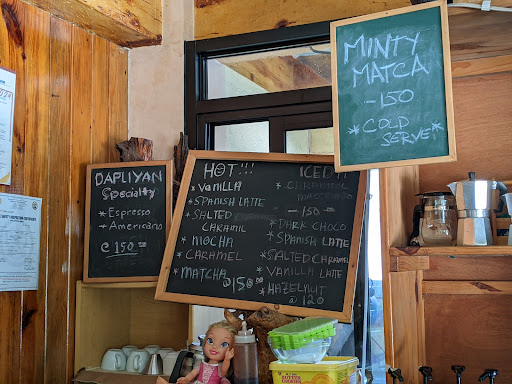 DAPLIYAN
Specialty
* Espresso
* Americano
@ 150
HOT!!!
* VANILLA
* SPANISH LATTE
* SALTED
CARAMEL
* MOCHA
* CARAMEL
* MATCHA @150
ICED
* CARAMEL
MACCHIATO
- 150 -
* DARK CHOCO
* SPANISH LATTE
* SALTED CARAMEL
* VANILLA LATTE
* HAZELNUT
@ 120
MINTY
MATCA
- 150
* COLD *
SERVE